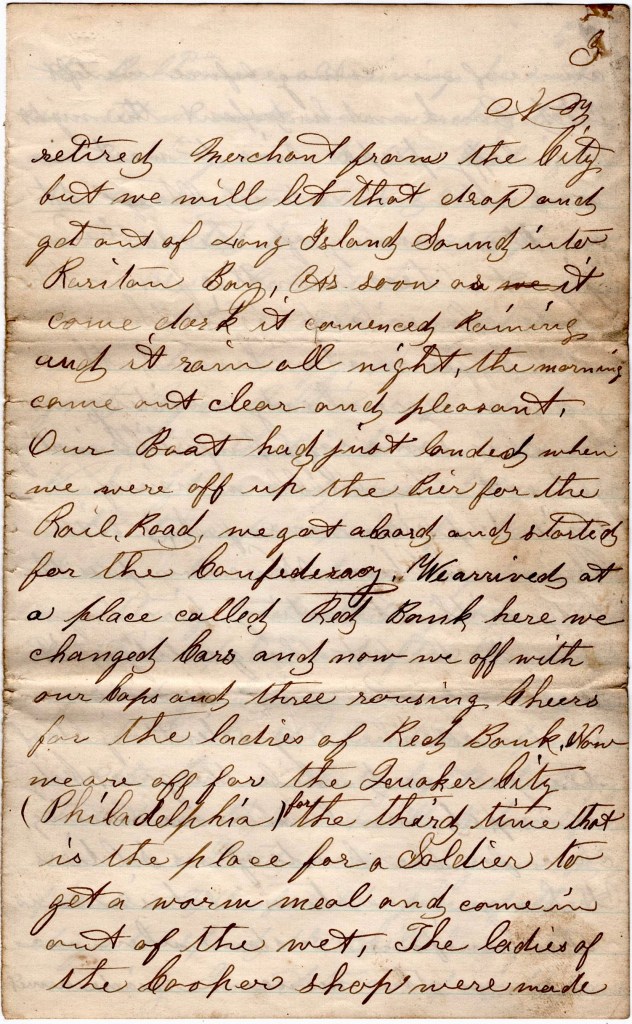 3
N.Y.
retired Merchant from the City
but we will let that drop and
get out of Long Island Sound into
Raritan Bay, As soon as we it
come dark it comenced Raining
and it rain all night, the morning
come out clear and pleasant,
Our Boat had just landed when
we were off up the Pier for the
Rail, Road, we got aboard and started
for the Confederacy. We arrived at
a place called Red Bank here we
changed Cars and now we off with
our Caps and three rousing Cheers
for the ladies of Red Bank. Now
we are off for the Quaker City
(Philadelphia) for the third time that
is the place for a Soldier to
get a worm meal and come in
out of the wet, The ladies of
the Cooper shop were made